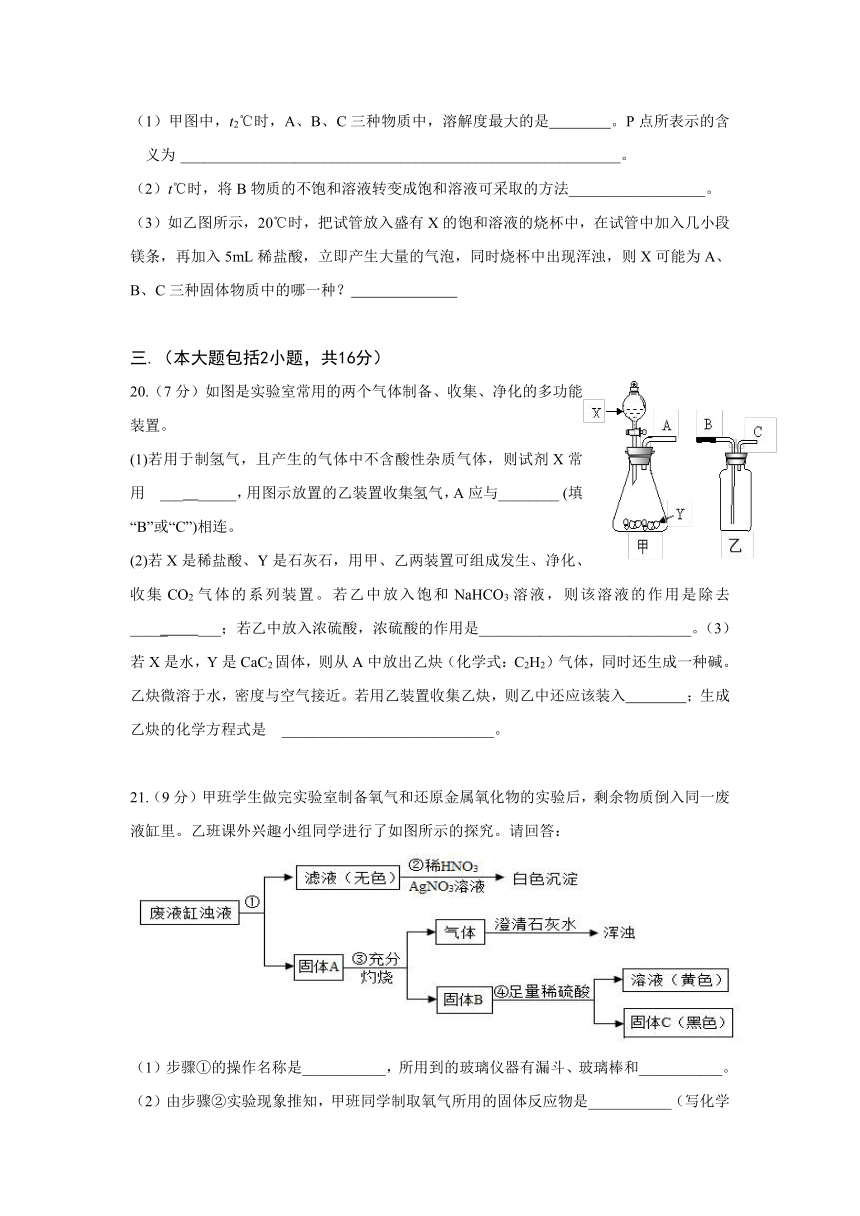 （1）甲图中，t₂℃时，A、B、C三种物质中，溶解度最大的是________。P点所表示的含
义为 ____________________________________________________________。
（2）t℃时，将B物质的不饱和溶液转变成饱和溶液可采取的方法__________________。
（3）如乙图所示，20℃时，把试管放入盛有X的饱和溶液的烧杯中，在试管中加入几小段
镁条，再加入5mL稀盐酸，立即产生大量的气泡，同时烧杯中出现浑浊，则X可能为A、
B、C三种固体物质中的哪一种？______________
三.（本大题包括2小题，共16分）
20.（7分）如图是实验室常用的两个气体制备、收集、净化的多功能
装置。
(1)若用于制氢气，且产生的气体中不含酸性杂质气体，则试剂X常
用 __________，用图示放置的乙装置收集氢气，A应与________ (填
“B”或“C”)相连。
(2)若X是稀盐酸、Y是石灰石，用甲、乙两装置可组成发生、净化、
收集CO₂气体的系列装置。若乙中放入饱和NaHCO₃溶液，则该溶液的作用是除去
____________；若乙中放入浓硫酸，浓硫酸的作用是____________________________。（3）
若X是水，Y是CaC₂固体，则从A中放出乙炔（化学式：C₂H₂）气体，同时还生成一种碱。
乙炔微溶于水，密度与空气接近。若用乙装置收集乙炔，则乙中还应该装入________；生成
乙炔的化学方程式是 ____________________________。
X
A
Y
甲
B
C
乙
21.（9分）甲班学生做完实验室制备氧气和还原金属氧化物的实验后，剩余物质倒入同一废
液缸里。乙班课外兴趣小组同学进行了如图所示的探究。请回答：
废液缸浊液
①
滤液（无色）
②稀HNO₃
AgNO₃溶液
白色沉淀
固体A
③充分
灼烧
气体
澄清石灰水
浑浊
固体B
④足量稀硫酸
溶液（黄色）
固体C（黑色）
（1）步骤①的操作名称是___________，所用到的玻璃仪器有漏斗、玻璃棒和___________。
（2）由步骤②实验现象推知，甲班同学制取氧气所用的固体反应物是___________（写化学